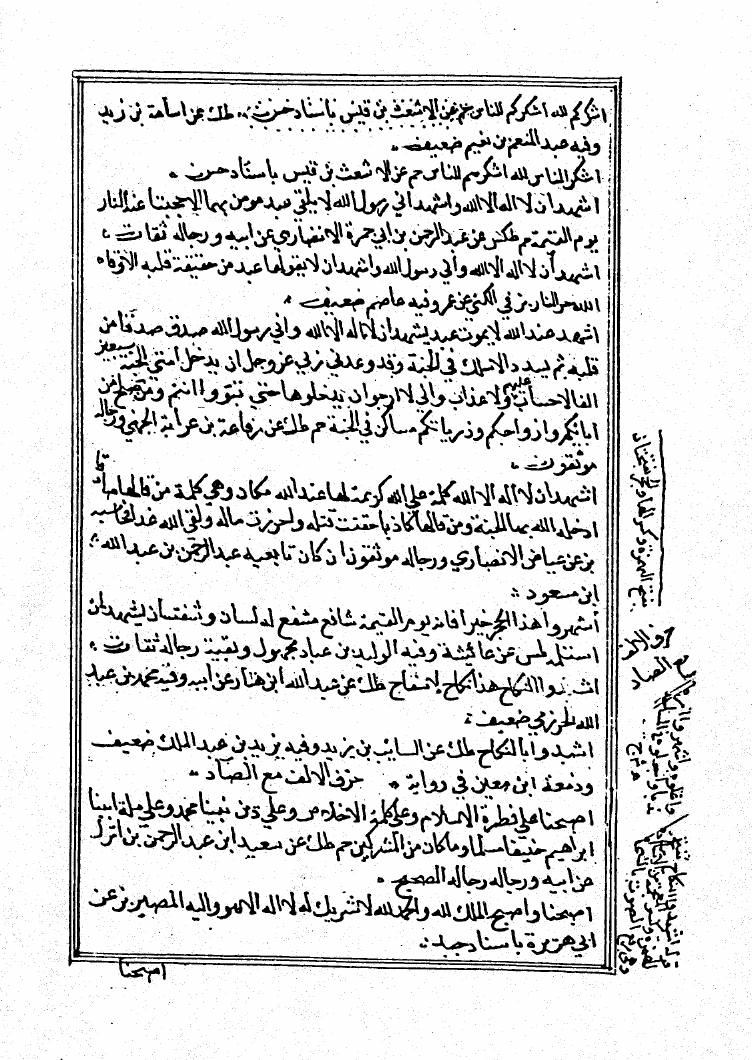 اشكركم لله اشكركم للناس حم عن الاشعث بن قيس باسناد حسن طك عن اسامة بن زيد
وفيه عبد المنعم بن نعيم ضعيف
اشكر الناس لله اشكرهم للناس حم عن الاشعث بن قيس باسناد حسن
اشهد ان لا اله الا الله واشهد اني رسول الله لا يلقى عبد مومن بهما الا حجبتا عنه النار
يوم القيمة طكس عن عبد الرحمن بن ابي عمرة الانصاري عن ابيه ورجاله ثقات
اشهد ان لا اله الا الله واني رسول الله واشهد ان لا يقولها عبد من حقيقة قلبه الا وقاه
الله حر النار بز في الكنى عن عمر وفيه عاصم ضعيف
اشهد عند الله لا يموت عبد يشهد ان لا اله الا الله واني رسول الله صدق صدقا من
قلبه ثم يسدد الا سلك في الجنة وقد وعدني ربي عز وجل ان يدخل امتي الجنة سبعين
الفا لا حساب عليهم ولا عذاب واني لارجو ان يدخلوها حتى تبوؤا انتم ومن صلح من
ابائكم وازواجكم وذرياتكم مساكن في الجنة حم طك عن رفاعة بن عرابة الجهني ورجاله
موثقون
اشهد ان لا اله الا الله كلمة على الله كريمة لها عند الله مكان وهي كلمة من قالها صادقا
ادخله الله بها الجنة ومن قالها كاذبا حقنت دمه واحرزت ماله ولقي الله غدا فحاسبه
بز عن عياض الانصاري ورجاله موثقون ان كان تابعيه عبد الرحمن بن عبد الله
ابن مسعود
اشهدوا هذا الحجر خيرا فانه يوم القيمة شافع مشفع له لسان وشفتان يشهد لمن
استلمه لمس عن عائشة وفيه الوليد بن عباد مجهول وبقية رجاله ثقات
اشيدوا النكاح هذا نكاح لا سفاح طك عن عبد الله ابن هبار عن ابيه وفيه محمد بن عبيد
الله العرزمي ضعيف
اشيدوا بالنكاح طك عن السايب بن يزيد وفيه يزيد بن عبد الملك ضعيف
وضعفه ابن معين في رواية حرف الالف مع الصاد
اصبحنا على فطرة الاسلام وعلى كلمة الاخلاص وعلى دين نبينا محمد وعلى ملة ابينا
ابراهيم حنيفا مسلما وما كان من المشركين حم طك عن سعيد ابن عبد الرحمن بن ابزى
عن ابيه ورجاله رجال الصحيح
اصبحنا واصبح الملك لله والحمد لله لا شريك له لا اله الا هو واليه المصير بز عن
ابي هريرة باسناد جيد
اصبحنا